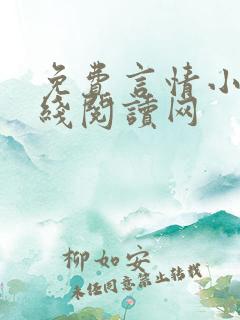 免费言情小
线阅读网
柳如安
未经同意禁止转载